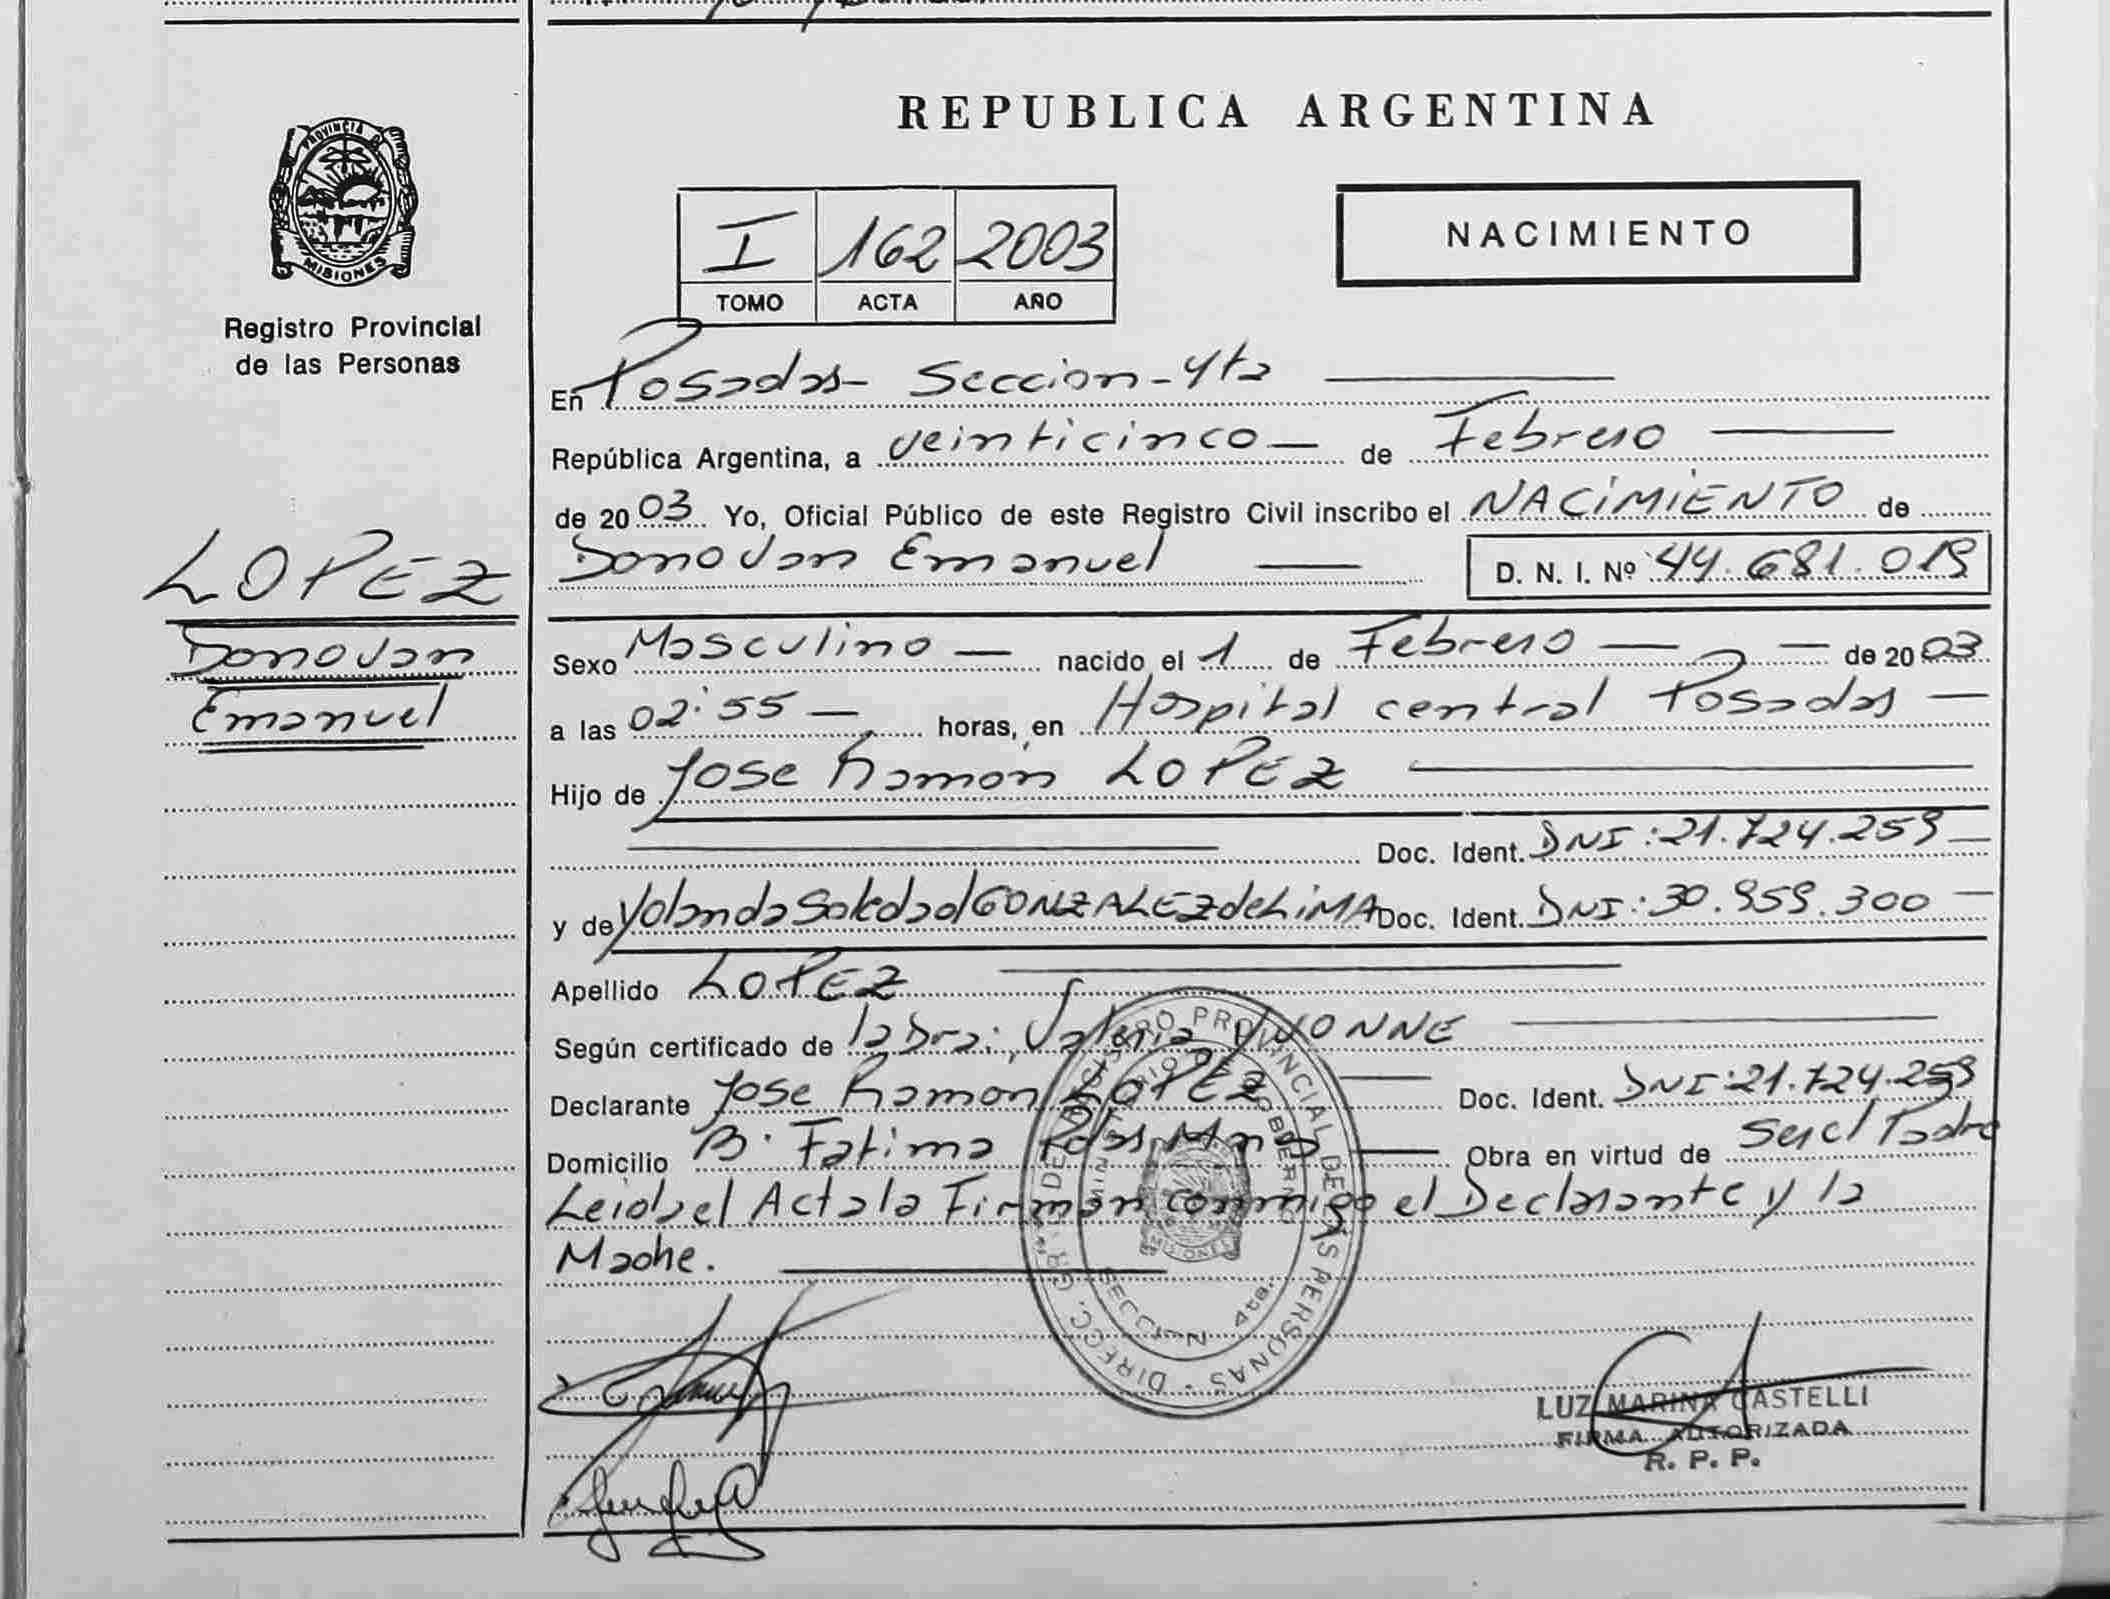 PROVINCIA DE
MISIONES
Registro Provincial
de las Personas
LOPEZ
Donovan
Emanuel
REPUBLICA ARGENTINA
I 162 2003
TOMO ACTA AÑO
NACIMIENTO
En Posadas - Seccion - 4ta
República Argentina, a veinticinco de Febrero
de 2003 Yo, Oficial Público de este Registro Civil inscribo el NACIMIENTO de
Donovan Emanuel D. N. I. Nº 44.681.019
Sexo Masculino nacido el 1 de Febrero de 2003
a las 02:55 horas, en Hospital central Posadas
Hijo de Jose Ramon LOPEZ
Doc. Ident. DNI: 21.724.259
y de Yolanda Soledad GONZALEZ de LiMA Doc. Ident. DNI: 30.959.300
Apellido LOPEZ
Según certificado de la Dra: Valeria YVONNE
Declarante Jose Ramon LOPEZ Doc. Ident. DNI: 21.724.259
Domicilio B. Fatima Pdas Mnes Obra en virtud de ser el Padre
Leida el Acta la Firman conmigo el Declarante y la
Madre.
DIRECC. GRAL. DEL REGISTRO PROVINCIAL DE LAS PERSONAS
MINISTERIO DE GOBIERNO
MISIONES
SECCION 4ta.
LUZ MARINA CASTELLI
FIRMA AUTORIZADA
R. P. P.